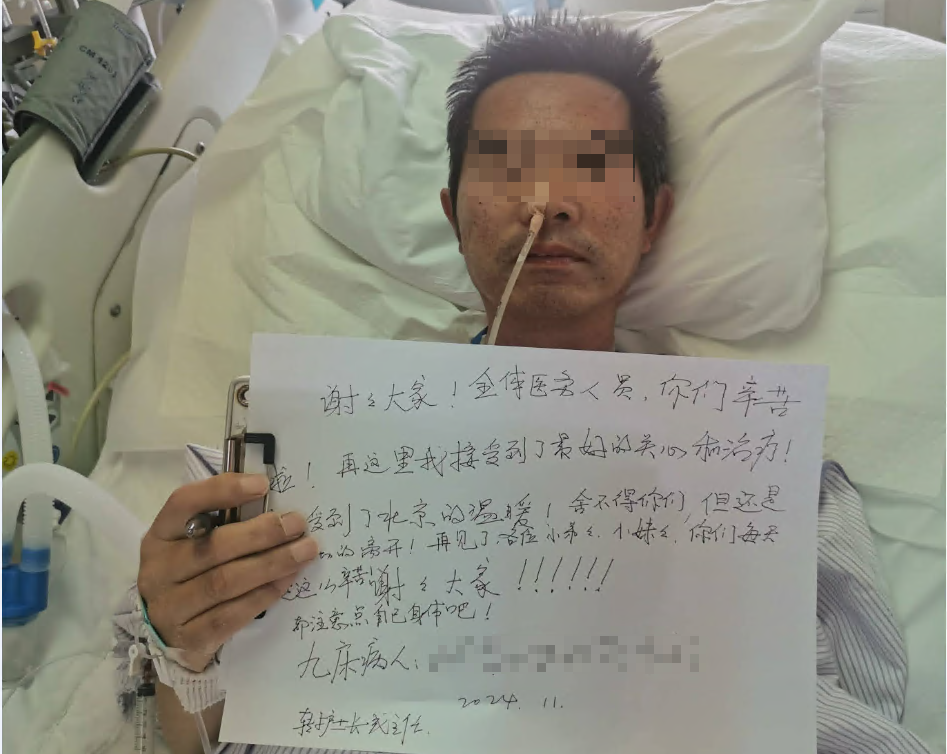 谢々大家！全体医务人员，你们辛苦
啦！再这里我接受到了最好的关心和治疗！
受到了北京的温暖！舍不得你们，但还是
的离开！再见了各位小弟々、小妹々，你们每天
这辛苦谢々大家！！！！！！
都注意点自己身体吧！
九床病人：
2024.11.
转护士长或主任
CM